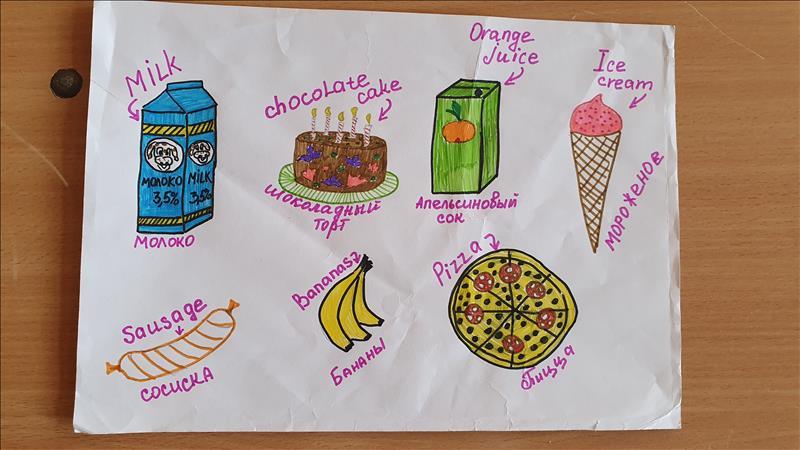 Milk
МОЛОКО
3,5%
MiLK
3,5%
МОЛОКО
chocolate
cake
Шоколадный
торт
Orange
juice
Апельсиновый
сок
Ice
cream
мороженое
Sausage
сосиска
Bananas
Бананы
Pizza
Пицца